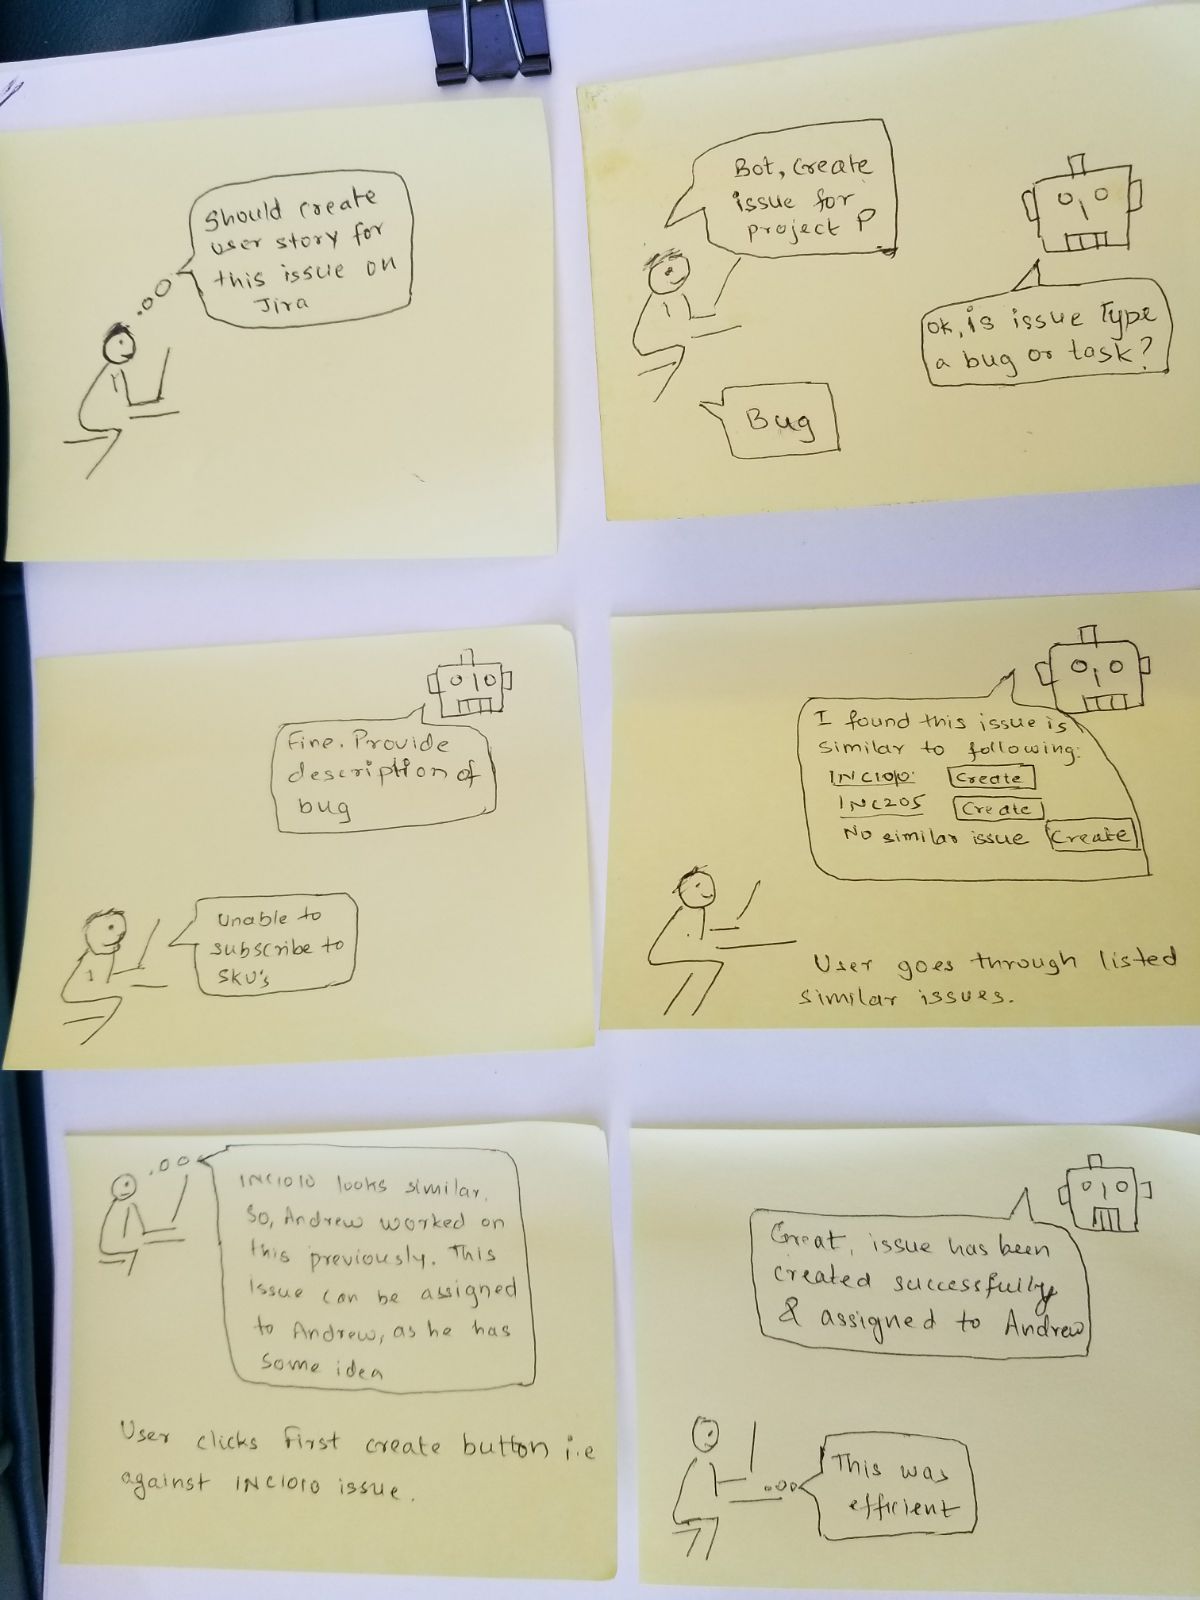 Should create
user story for
this issue on
Jira
Bot, Create
issue for
project P
Ok, is issue Type
a bug or task?
Bug
Fine. Provide
description of
bug
Unable to
subscribe to
SKU's
I found this issue is
similar to following:
INC1010: Create
INC205 Create
No similar issue Create
User goes through listed
similar issues.
INC1010 looks similar.
So, Andrew worked on
this previously. This
issue can be assigned
to Andrew, as he has
some idea
User clicks first create button i.e
against INC1010 issue.
Great, issue has been
created successfully
& assigned to Andrew
This was
efficient